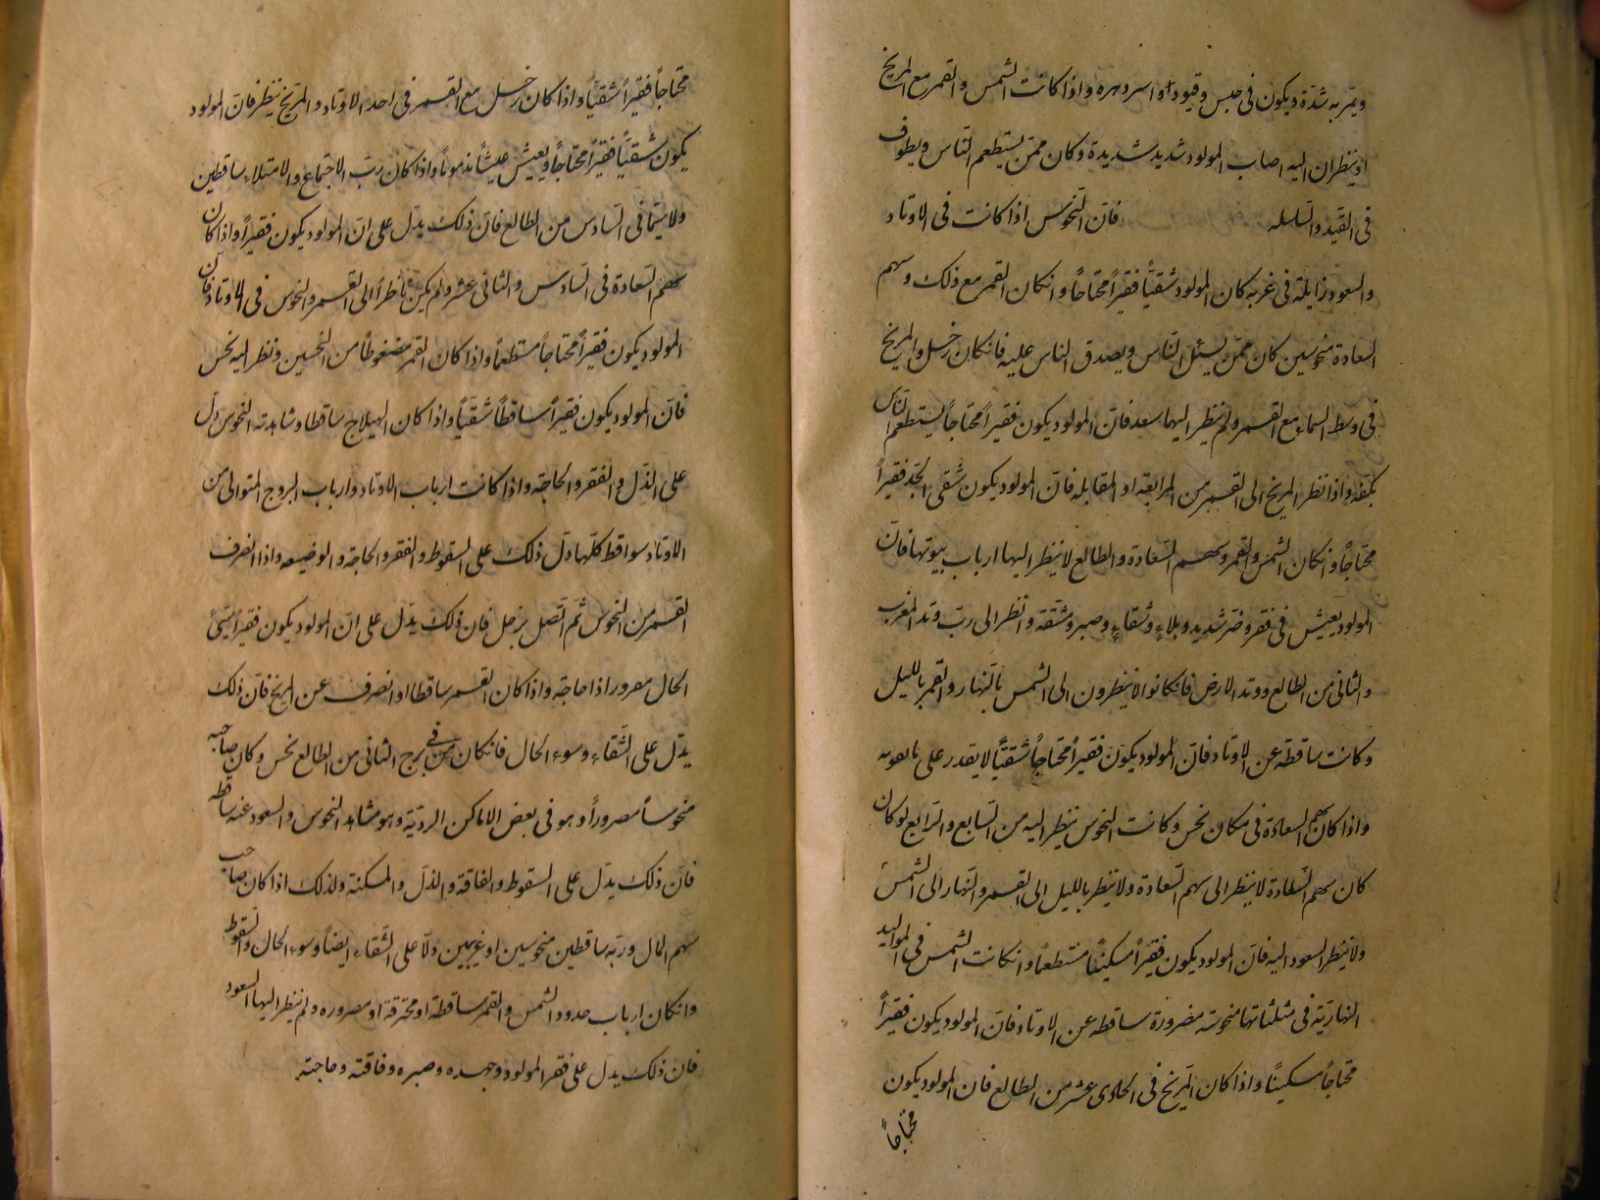 ويمر به شدة ويكون فى حبس وقيود او اسر وهره واذا كانت الشمس والقمر مع المريخ
او ينظران اليه اصاب المولود شديد شديدة وكان ممن يستطعم الناس ويطوف
فى القيد والسلسله فان النحوس اذا كانت فى الاوتاد
والسعود زايلة فى غربه كان المولود شقيّاً فقيراً محتاجاً وانكان القمر مع ذلك وسهم
السعادة منحوسين كان ممّن يسئل الناس ويصدق الناس عليه فانكان زحل والمريخ
فى وسط السماء مع القمر ولم ينظر اليها سعد فان المولود يكون فقيراً محتاجاً يستطعم الناس
بكفه واذا نظر المريخ الى القمر من المرابعة او المقابله فان المولود يكون شقى الجد فقيراً
محتاجاً وانكان الشمس والقمر وسهم السعادة والطالع لا ينظر اليها ارباب بيوتها فان
المولود يعيش فى فقر وضر شديد وبلاءٍ وشقاءٍ وصبر ومشقه وانظر الى رب وتد المغرب
والثانى من الطالع ووتد الارض فانكانوا لا ينظرون الى الشمس بالنهار والقمر بالليل
وكانت ساقطة عن الاوتاد فان المولود يكون فقيراً محتاجاً شقيّاً لا يقدر على ما يقوته
واذا كان سهم السعادة فى مكان نحس وكانت النحوس ينظر اليه من السابع والرابع لو كان
كان سهم السعادة لا ينظر الى سهم السعادة ولا ينظر بالليل الى القمر والنهار الى الشمس
ولا ينظر السعود اليه فان المولود يكون فقيراً مسكيناً مستطعماً وانكانت الشمس فى المواليد
النهاريّة فى مثلثاتها منحوسة مضرورة ساقطه عن الاوتاد فان المولود يكون فقيراً
محتاجاً مسكيناً واذا كان المريخ فى الحادى عشر من الطالع فان المولود يكون
محتاجاً
محتاجاً فقيراً شقيّاً واذا كان زحل مع القمر فى احد الاوتاد والمريخ ينظر فان المولود
يكون شقيّاً فقيراً محتاجاً ويعيش عيشاً مذموماً واذا كان رب الاجتماع والامتلاء ساقطين
ولا سيّما فى السادس من الطالع فان ذلك يدل على ان المولود يكون فقيراً واذا كان
سهم السعادة فى السادس والثانى عشر ولم يكن ناظراً الى القمر والنحوس فى الاوتاد فان
المولود يكون فقيراً محتاجاً مستطعماً واذا كان القمر مضغوطاً من النحسين ونظر اليه نحس
فان المولود يكون فقيراً ساقطاً شقيّاً واذا كان الهيلاج ساقطا وشاهدته النحوس دل
على الذل والفقر والحاجة واذا كانت ارباب الاوتاد وارباب البروج المتوالى من
الاوتاد سواقط كلها دل ذلك على السقوط والفقر والحاجة والوضيعه واذا انصرف
القمر من النحوس ثم اتصل بزحل فان ذلك يدل على ان المولود يكون فقيراً سيّئ
الحال معرورا ذا حاجة واذا كان القمر ساقطا او انصرف عن المريخ فان ذلك
يدل على الشقاء وسوء الحال فانكان فى برج الثانى من الطالع نحس وكان صاحبه
منحوساً مضروراً وهو فى بعض الاماكن الردية وهو مشاهد النحوس والسعود عنه ساقطه
فان ذلك يدل على السقوط والفاقة والذل والمسكنة ولذلك اذا كان صاحب
سهم المال وربه ساقطين منحوسين او غريبين دلّا على الشقاء ايضاً وسوء الحال والسقوط
وانكان ارباب حدود الشمس والقمر ساقطة او محترقة او مضروره ولم ينظر اليها السعود
فان ذلك يدل على فقر المولود وجهده وصبره وفاقته وحاجته